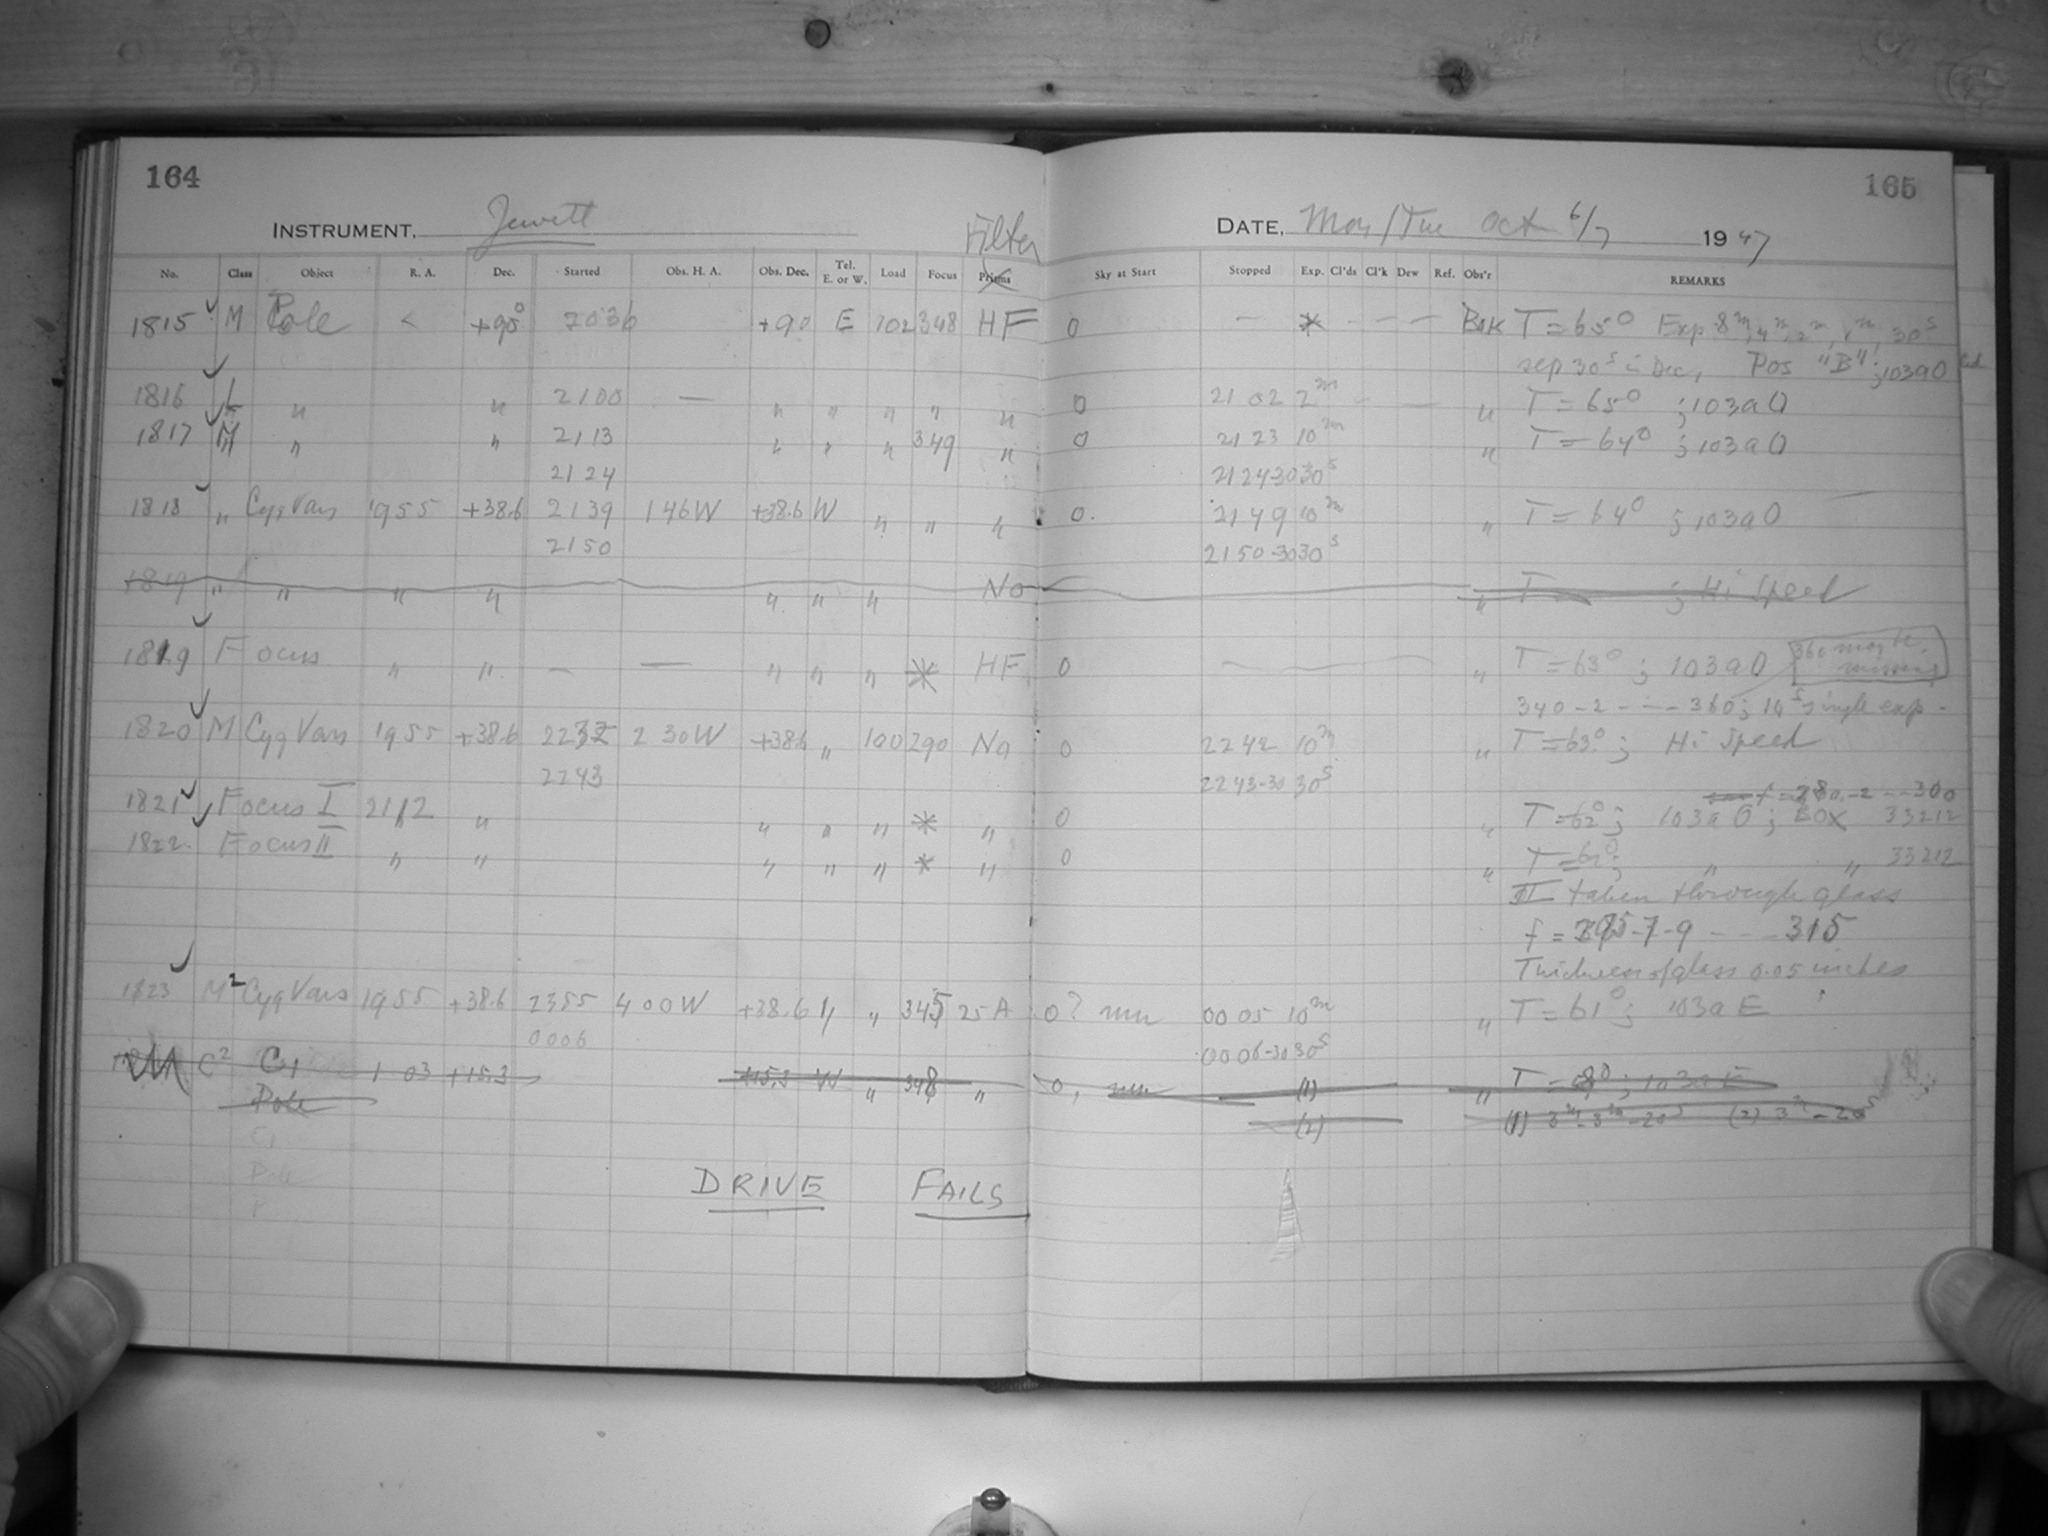 164
165
INSTRUMENT, Jewett
DATE, Mon/Tue Oct 6/7 1947
Filter
No. Class Object R. A. Dec. Started Obs. H. A. Obs. Dec. Tel. E. or W. Load Focus Prisms Sky at Start Stopped Exp. Cl'ds Cl'k Dew Ref. Obs'r REMARKS
1815 M Pole +90° 2036 +90 E 102 348 HF 0 — * - - - BJK T = 65° Exp 8m, 4m, 2m, 1m, 30s
sep 30s in Dec, Pos "B"; 103aO
1816 L " " 2100 — " " " " " 0 2102 2m " T = 65° ; 103aO
1817 M " " 2113 " " " 349 " 0 2123 10m " T = 64° ; 103aO
2124 2124-30 30s
1818 " Cyg Vars 1955 +38.6 2139 146W +38.6 W " " " 0. 2149 10m " T = 64° ; 103aO
2150 2150-30 30s
1819 " " " " " " " No " T ; Hi Speed
1819 Focus " " — — " " " * HF 0 " T = 63° ; 103aO 360 may be missing
340-2---360; 10s single exp.
1820 M Cyg Vars 1955 +38.6 2232 2 30W +38.6 " 100 290 No 0 2242 10m " T = 63° ; Hi Speed
2243 2243-30 30s
f = 280-2---300
1821 Focus I 2112 " " " " * " 0 " T = 62° ; 103aO ; Box 33212
1822 Focus II " " " " " * " 0 " T = 61° ; " " 33212
II taken through glass
f = 295-7-9----315
Thickness of glass 0.05 inches
1823 M2 Cyg Vars 1955 +38.6 2355 4 00W +38.6 " " 345 25A 0? 0005 10m " T = 61° ; 103aE
0006 0006-30 30s
C2 C1 1 03 +15.3 +15.3 W " 348 " 0, (1) " T = ; 103aE
Pole (2) (1) 3m-3m-20s (2) 3m-20s
C1
Pole
DRIVE FAILS